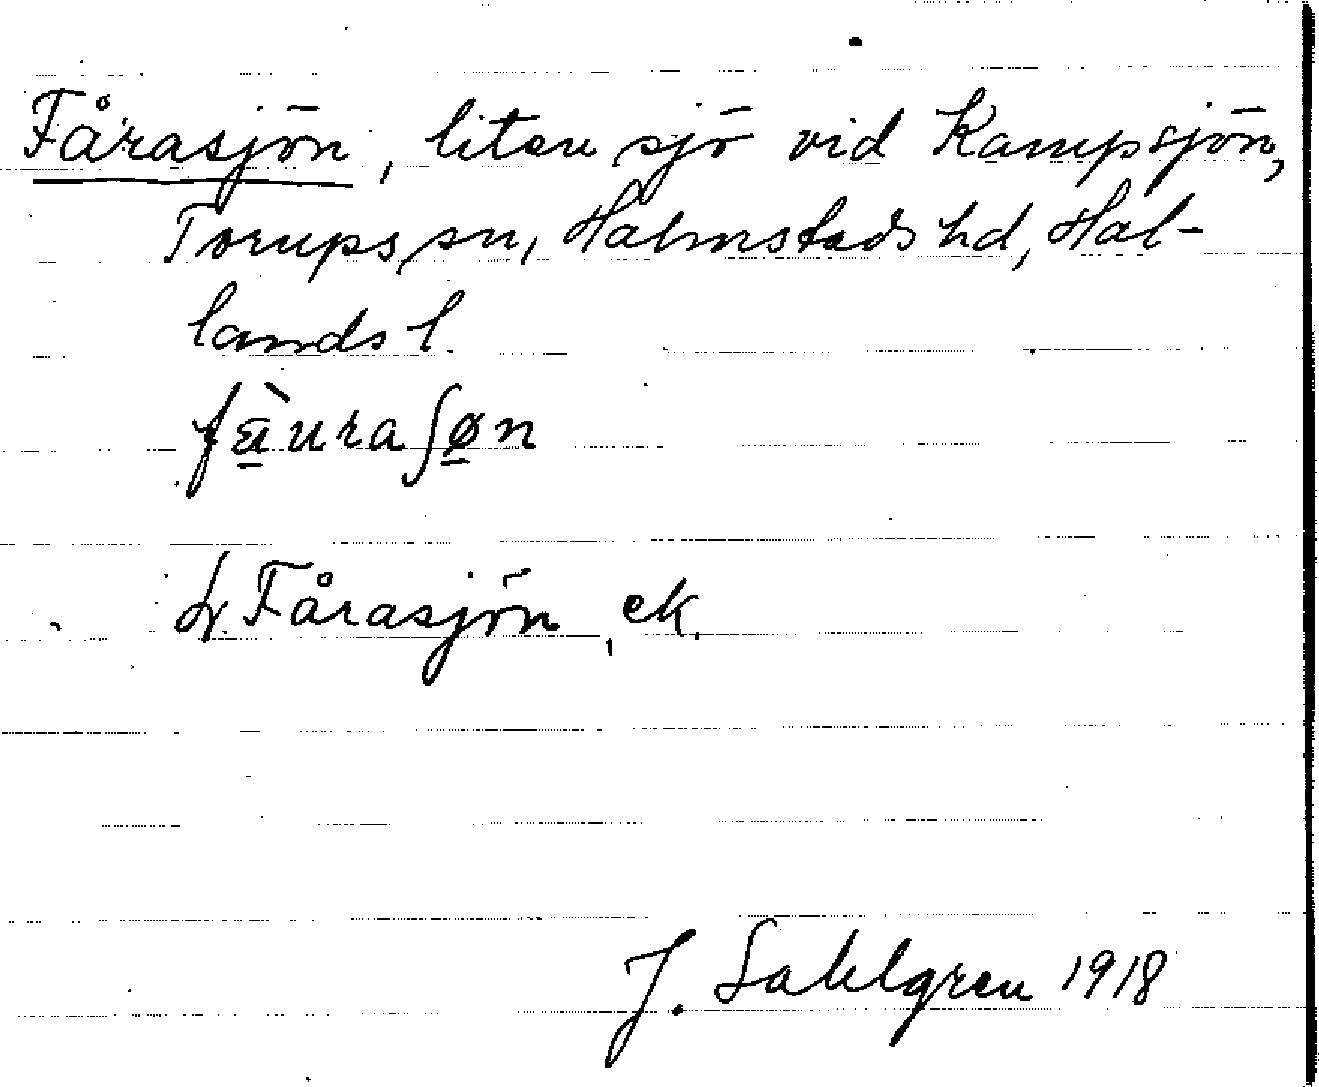 Fårasjön, liten sjö vid Kampsjön,
Torups sn, Halmstads hd, Hal-
lands l.
fà̱uraʃø̱n
Fårasjön, ek.
J. Sahlgren 1918